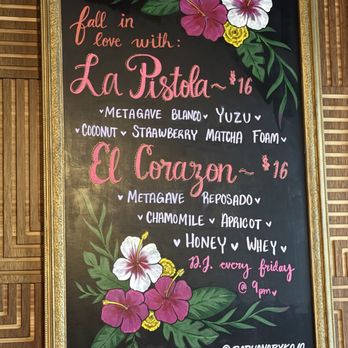 fall in
love with:
La Pistola ~ $16
METAGAVE BLANCO ♥ YUZU ♥
COCONUT ♥ STRAWBERRY MATCHA FOAM ♥
El Corazon ~ $16
♥ METAGAVE REPOSADO ♥
♥ CHAMOMILE ♥ APRICOT ♥
♥ HONEY ♥ WHEY ♥
D.J. every friday
@ 9pm ♥